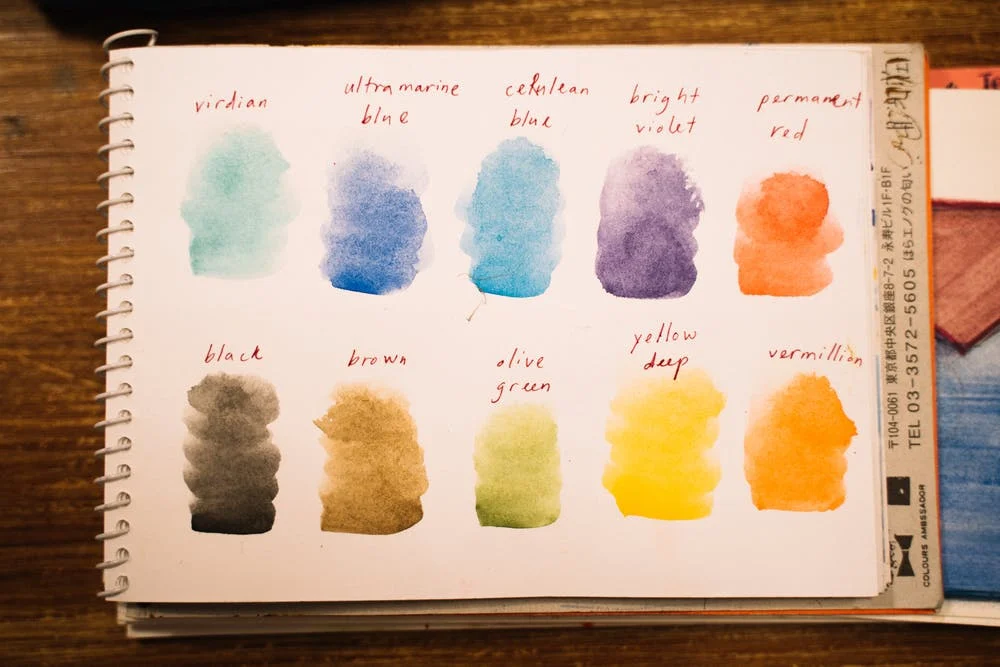 virdian
ultramarine
blue
cerulean
blue
bright
violet
permanent
red
black
brown
olive
green
yellow
deep
vermillion
〒104-0061 東京都中央区銀座8-7-2 永寿ビル1F・B1F
TEL 03-3572-5605 ほらエノグの匂い
COLOURS AMBSSADOR